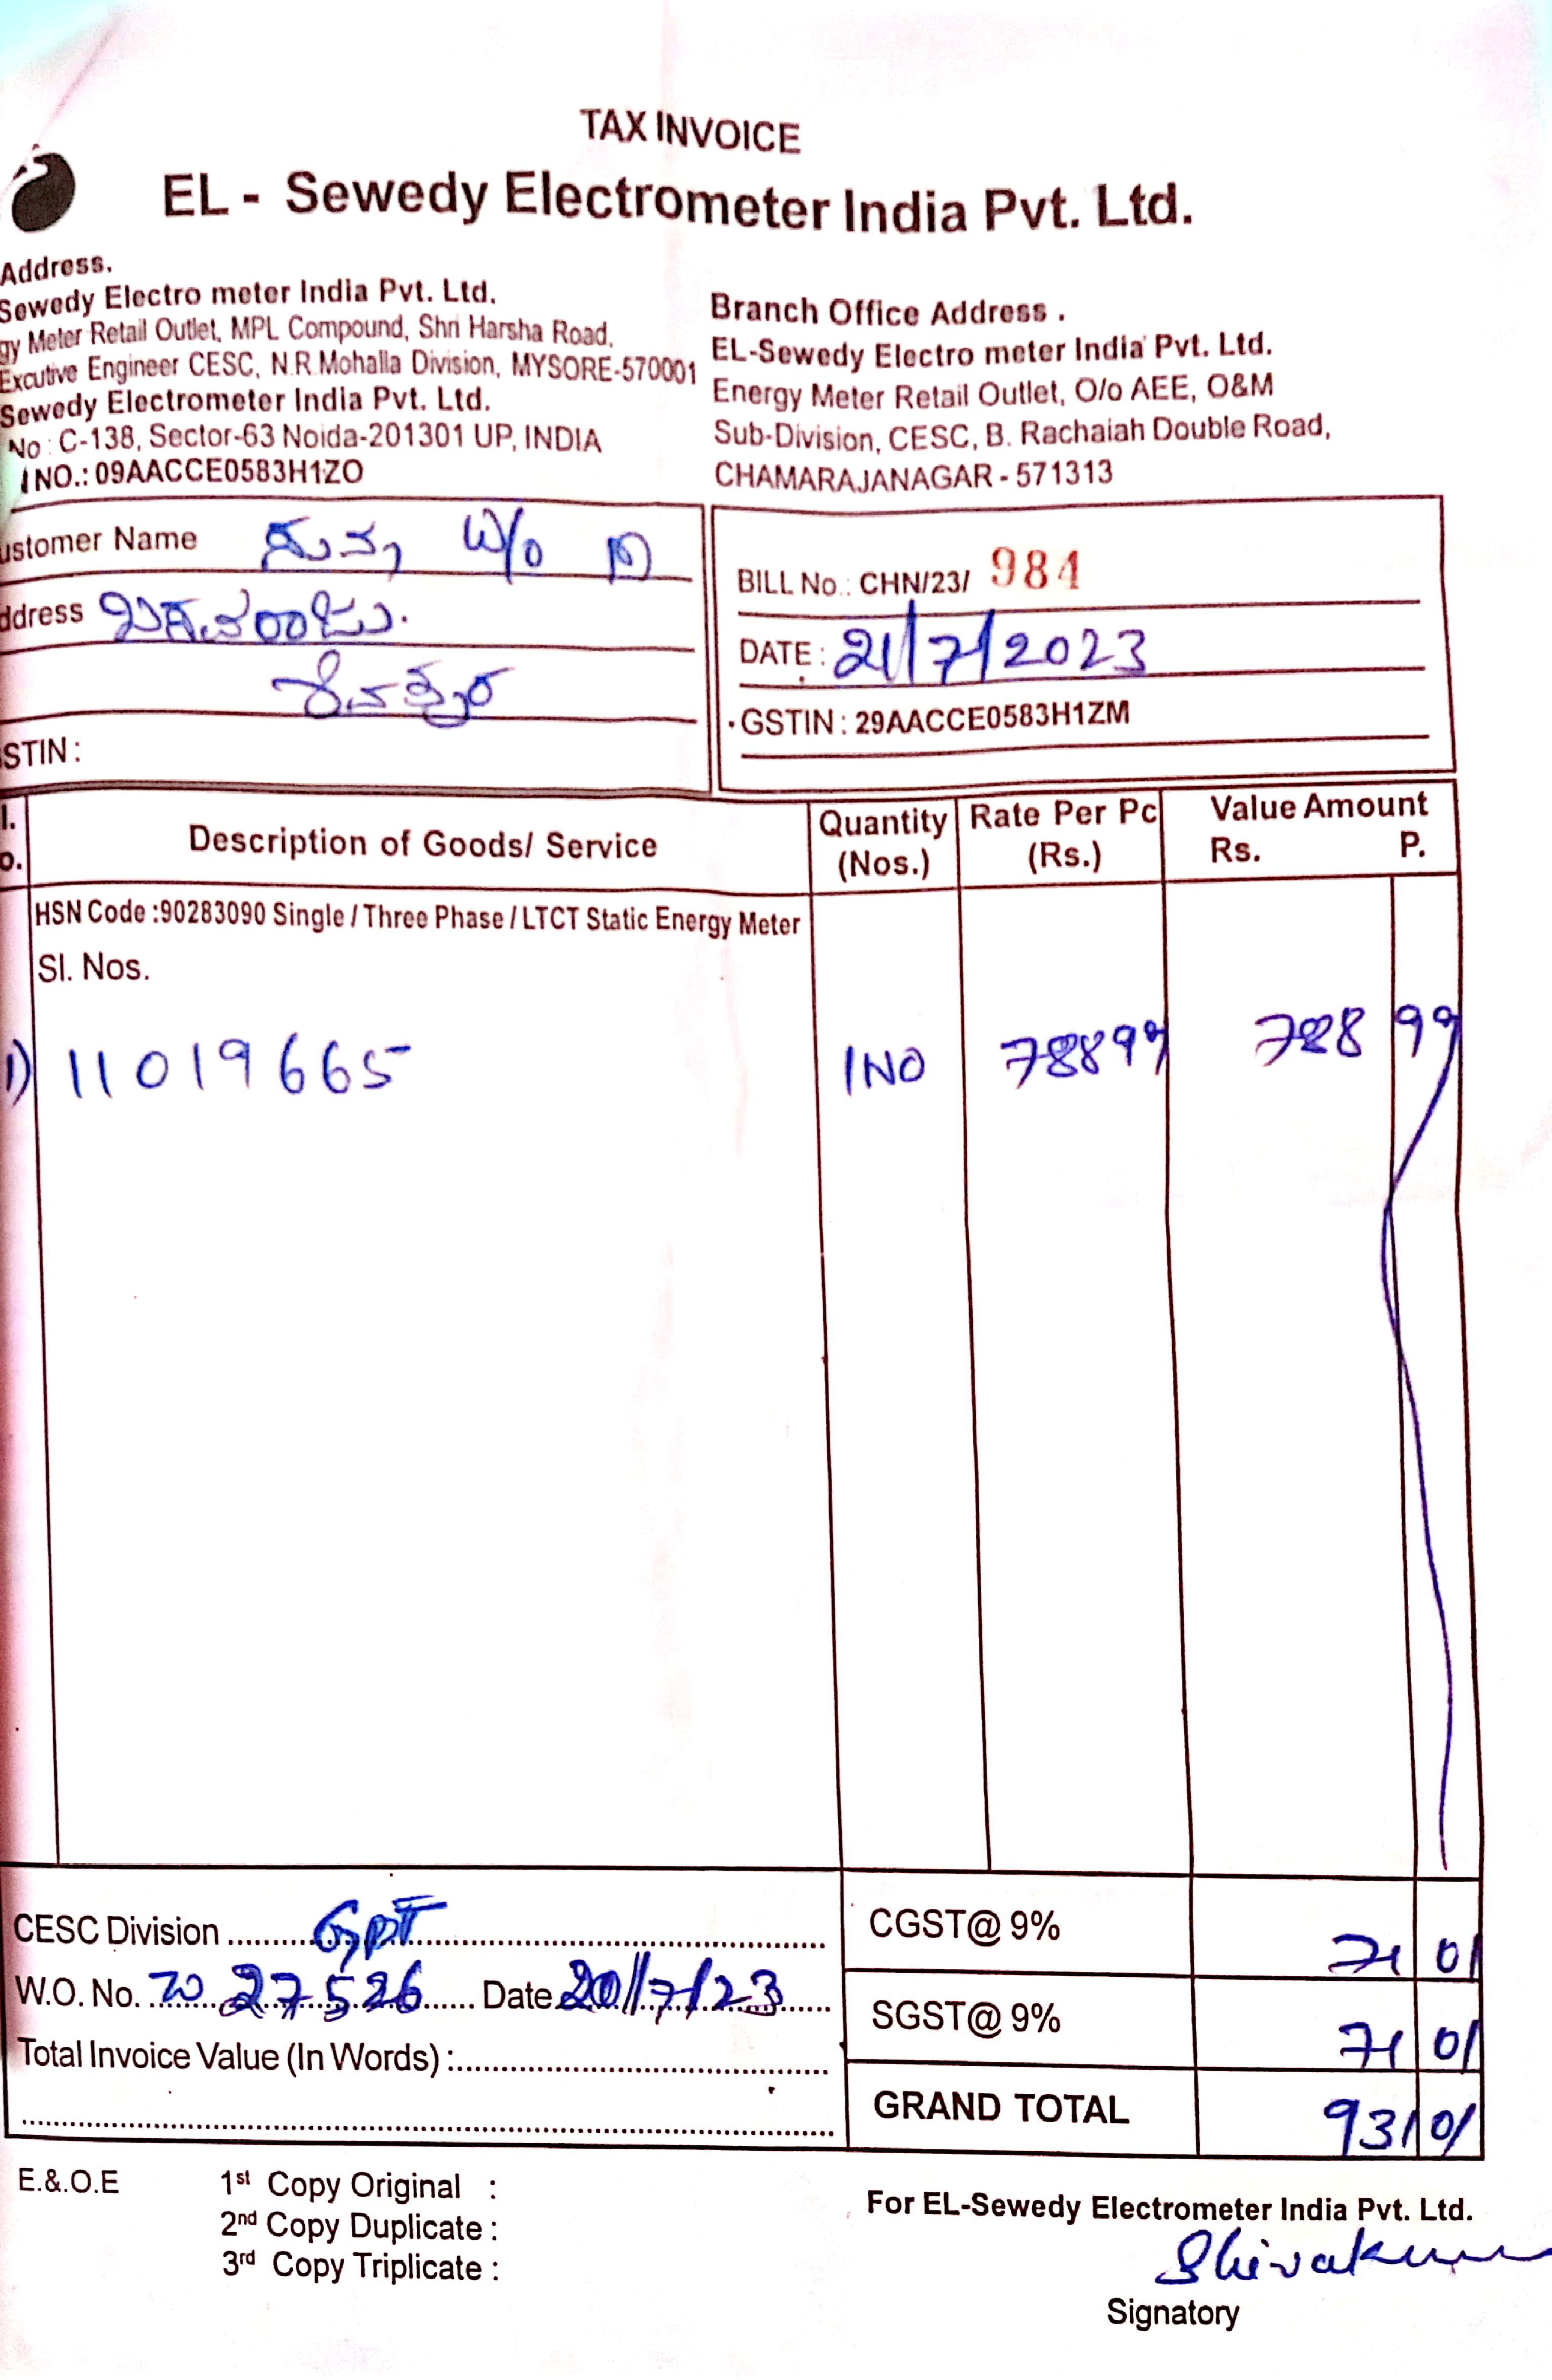 TAX INVOICE
EL - Sewedy Electrometer India Pvt. Ltd.
Address.
Sewedy Electro meter India Pvt. Ltd.
gy Meter Retail Outlet, MPL Compound, Shri Harsha Road,
Excutive Engineer CESC, N.R Mohalla Division, MYSORE-570001
Sewedy Electrometer India Pvt. Ltd.
No : C-138, Sector-63 Noida-201301 UP, INDIA
NO.: 09AACCE0583H1ZO
Branch Office Address .
EL-Sewedy Electro meter India Pvt. Ltd.
Energy Meter Retail Outlet, O/o AEE, O&M
Sub-Division, CESC, B. Rachaiah Double Road,
CHAMARAJANAGAR - 571313
ustomer Name W/o
ddress ಬಸವರಾಜು.
ಶಿವಪುರ
STIN :
BILL No.: CHN/23/ 984
DATE : 21/7/2023
GSTIN : 29AACCE0583H1ZM
l. o. Description of Goods/ Service Quantity (Nos.) Rate Per Pc (Rs.) Value Amount Rs. P.
HSN Code :90283090 Single / Three Phase / LTCT Static Energy Meter
Sl. Nos.
1) 11019665 1NO 78899 788 99
CESC Division Gpt
W.O. No. 27526 Date 20/7/23
Total Invoice Value (In Words) :
CGST@ 9% 71 01
SGST@ 9% 71 01
GRAND TOTAL 931 01
E.&.O.E
1st Copy Original :
2nd Copy Duplicate :
3rd Copy Triplicate :
For EL-Sewedy Electrometer India Pvt. Ltd.
Shivakum
Signatory